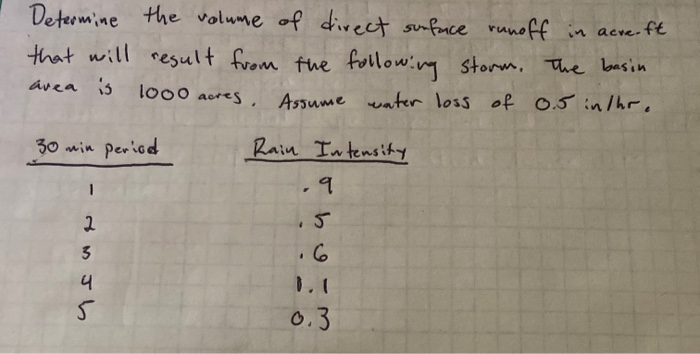 Determine the volume of direct surface runoff in acre.ft
that will result from the following storm. The basin
area is 1000 acres. Assume water loss of 0.5 in/hr.
30 min period Rain Intensity
1 .9
2 .5
3 .6
4 1.1
5 0.3